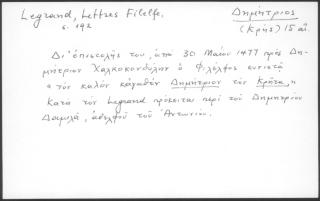 Legrand, Lettres Filelfe. Δημήτριος
σ. 192 (Κρής) 15 αἰ.
Δι' ἐπιστολῆς του, ἀπὸ 30 Μαΐου 1477 πρὸς Δη-
μήτριον Χαλκοκονδύλην ὁ Φιλέλφος συνιστᾷ
"τὸν καλὸν κἀγαθὸν Δημήτριον τὸν Κρῆτα"
κατὰ τὸν Legrand πρόκειται περὶ τοῦ Δημητρίου
Δαμιλᾶ, ἀδελφοῦ τοῦ Ἀντωνίου.